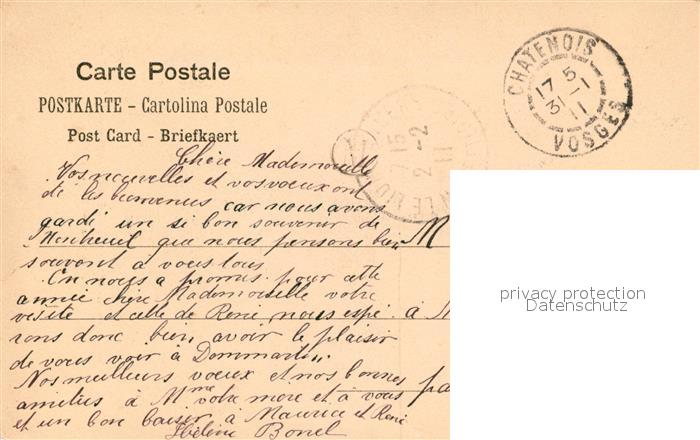 Carte Postale
POSTKARTE – Cartolina Postale
Post Card – Briefkaert
CHATENOIS
17 5
31 -1
11
VOSGES
15
2 -2
11
Chère Mademoiselle
Vos nouvelles et vos voeux ont
été les bienvenus car nous avons
gardé un si bon souvenir de
que nous pensons bien
souvent à vous tous
On nous a promis pour cette
année chère Mademoiselle votre
visite et celle de René nous espé-
rons donc bien avoir le plaisir
de vous voir à Dommartin.
Nos meilleurs voeux et nos bonnes
amitiés à Mme votre mère et à vous
et un bon baiser à Maurice et René
Hélène Bonel
M
à
pa
privacy protection
Datenschutz